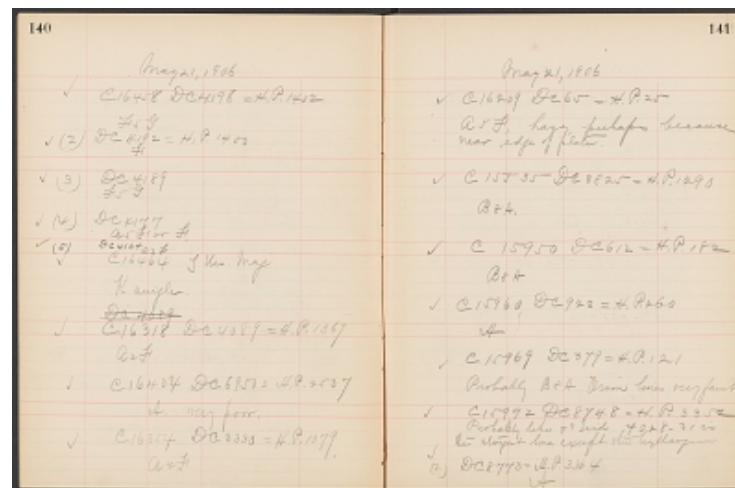 140
May 21, 1906
✓ C16458 DC4198 = H.P. 1402
F5G
✓ (2) DC4192 = H.P. 1400
F
✓ (3) DC4189
F5G
✓ (4) DC4177
A5F or F.
✓ (5)
✓ C16464
K
C16318 DC4389 = H.P. 1367
A2F
✓ C16404 DC6950 = H.P. 2537
A very poor.
✓ DC3333 = H.P. 1079.
A2F
141
May 21, 1906
✓ C16209 DC65 = H.P. 25
A5F, hazy, perhaps because
near edge of plate.
✓ C15535 DC3825 = H.P. 1290
B8A.
✓ C 15950 DC612 = H.P. 182
B8A
✓ C15960 DC922 = H.P. 260
A
✓ C15969 DC379 = H.P. 121
Probably B8A lines very faint
✓ C15992 DC8748 = H.P. 3352
Probably
line except the hydrogen
✓
(2) DC8773 = H.P. 3364
A